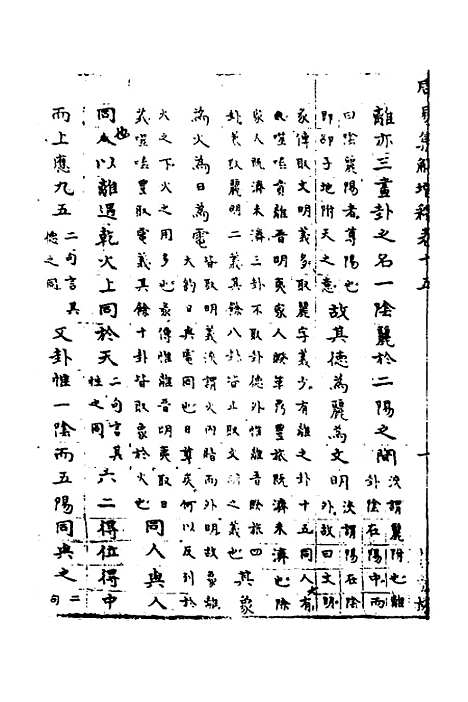 周易集解增釋卷十五
離亦三畫卦之名一陰麗於二陽之間
泼謂麗附也離
卦陰在陽中而
曰陰麗陽者尊陽也
即邵子地附天之意
故其德為麗為文明
泼謂陽在陰
外故曰文明
彖傳取文明義多取麗字義少有離之卦十五同人大有
噬嗑賁離晉明夷家人睽革鼎豐旅既濟未濟也除
家人既濟未濟三卦不取卦德外惟離晉睽旅四
卦義取麗明二義其餘八卦皆止取文明之義也
其象
為火為日為電
皆取明義泼謂火內暗而外明故象離
大約日與電同也日尊矣何以反列於
火之下火之用多也彖傳惟離晉明夷取日
義噬嗑豐取電義其餘十卦皆取象於火也
同人與人
同也以離遇乾火上同於天
二句言其
性之同
六二得位得中
而上應九五
二句言其
德之同
又卦惟一陰而五陽同與之
二句